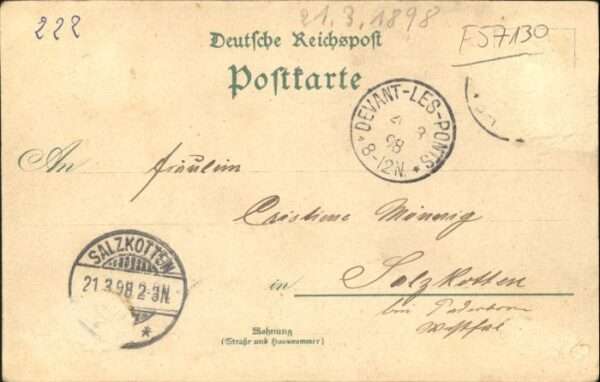 222
21.3.1898
FS7130
Deutsche Reichspost
Postkarte
DEVANT-LES-PONTS
98
8-12N.
An Fräulein
Cristiene Mönnig
in Salzkotten
bei Paderborn
Westfal
SALZKOTTEN
21.3.98 2-3N
Wohnung
(Straße und Hausnummer)